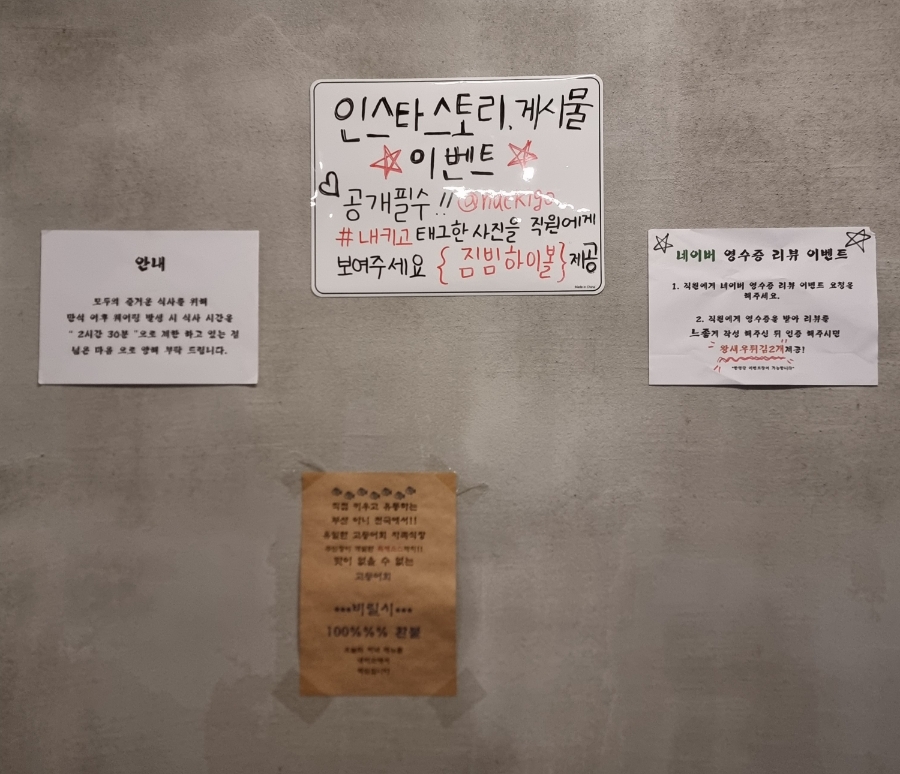 인스타스토리, 게시물
이벤트
공개필수!! @naekigo
#내키고 태그한 사진을 직원에게
보여주세요 { 짐빔하이볼 } 제공
안내
모두의 즐거운 식사를 위해
만석 이후 웨이팅 발생 시 식사 시간을
" 2시간 30분 "으로 제한 하고 있는 점
넓은 마음 으로 양해 부탁 드립니다.
네이버 영수증 리뷰 이벤트
1. 직원에게 네이버 영수증 리뷰 이벤트 요청을
해주세요.
2. 직원에게 영수증을 받아 리뷰를
느좋게 작성 해주신 뒤 인증 해주시면
왕새우튀김2개제공!
직접 키우고 유통하는
부산 아니 전국에서!!
유일한 고등어회 사과식장
맛이 없을 수 없는
고등어회
***비릴시***
100%%% 환불